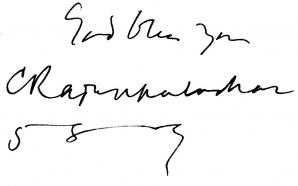 God bless you
CRajagopalachari
5 8